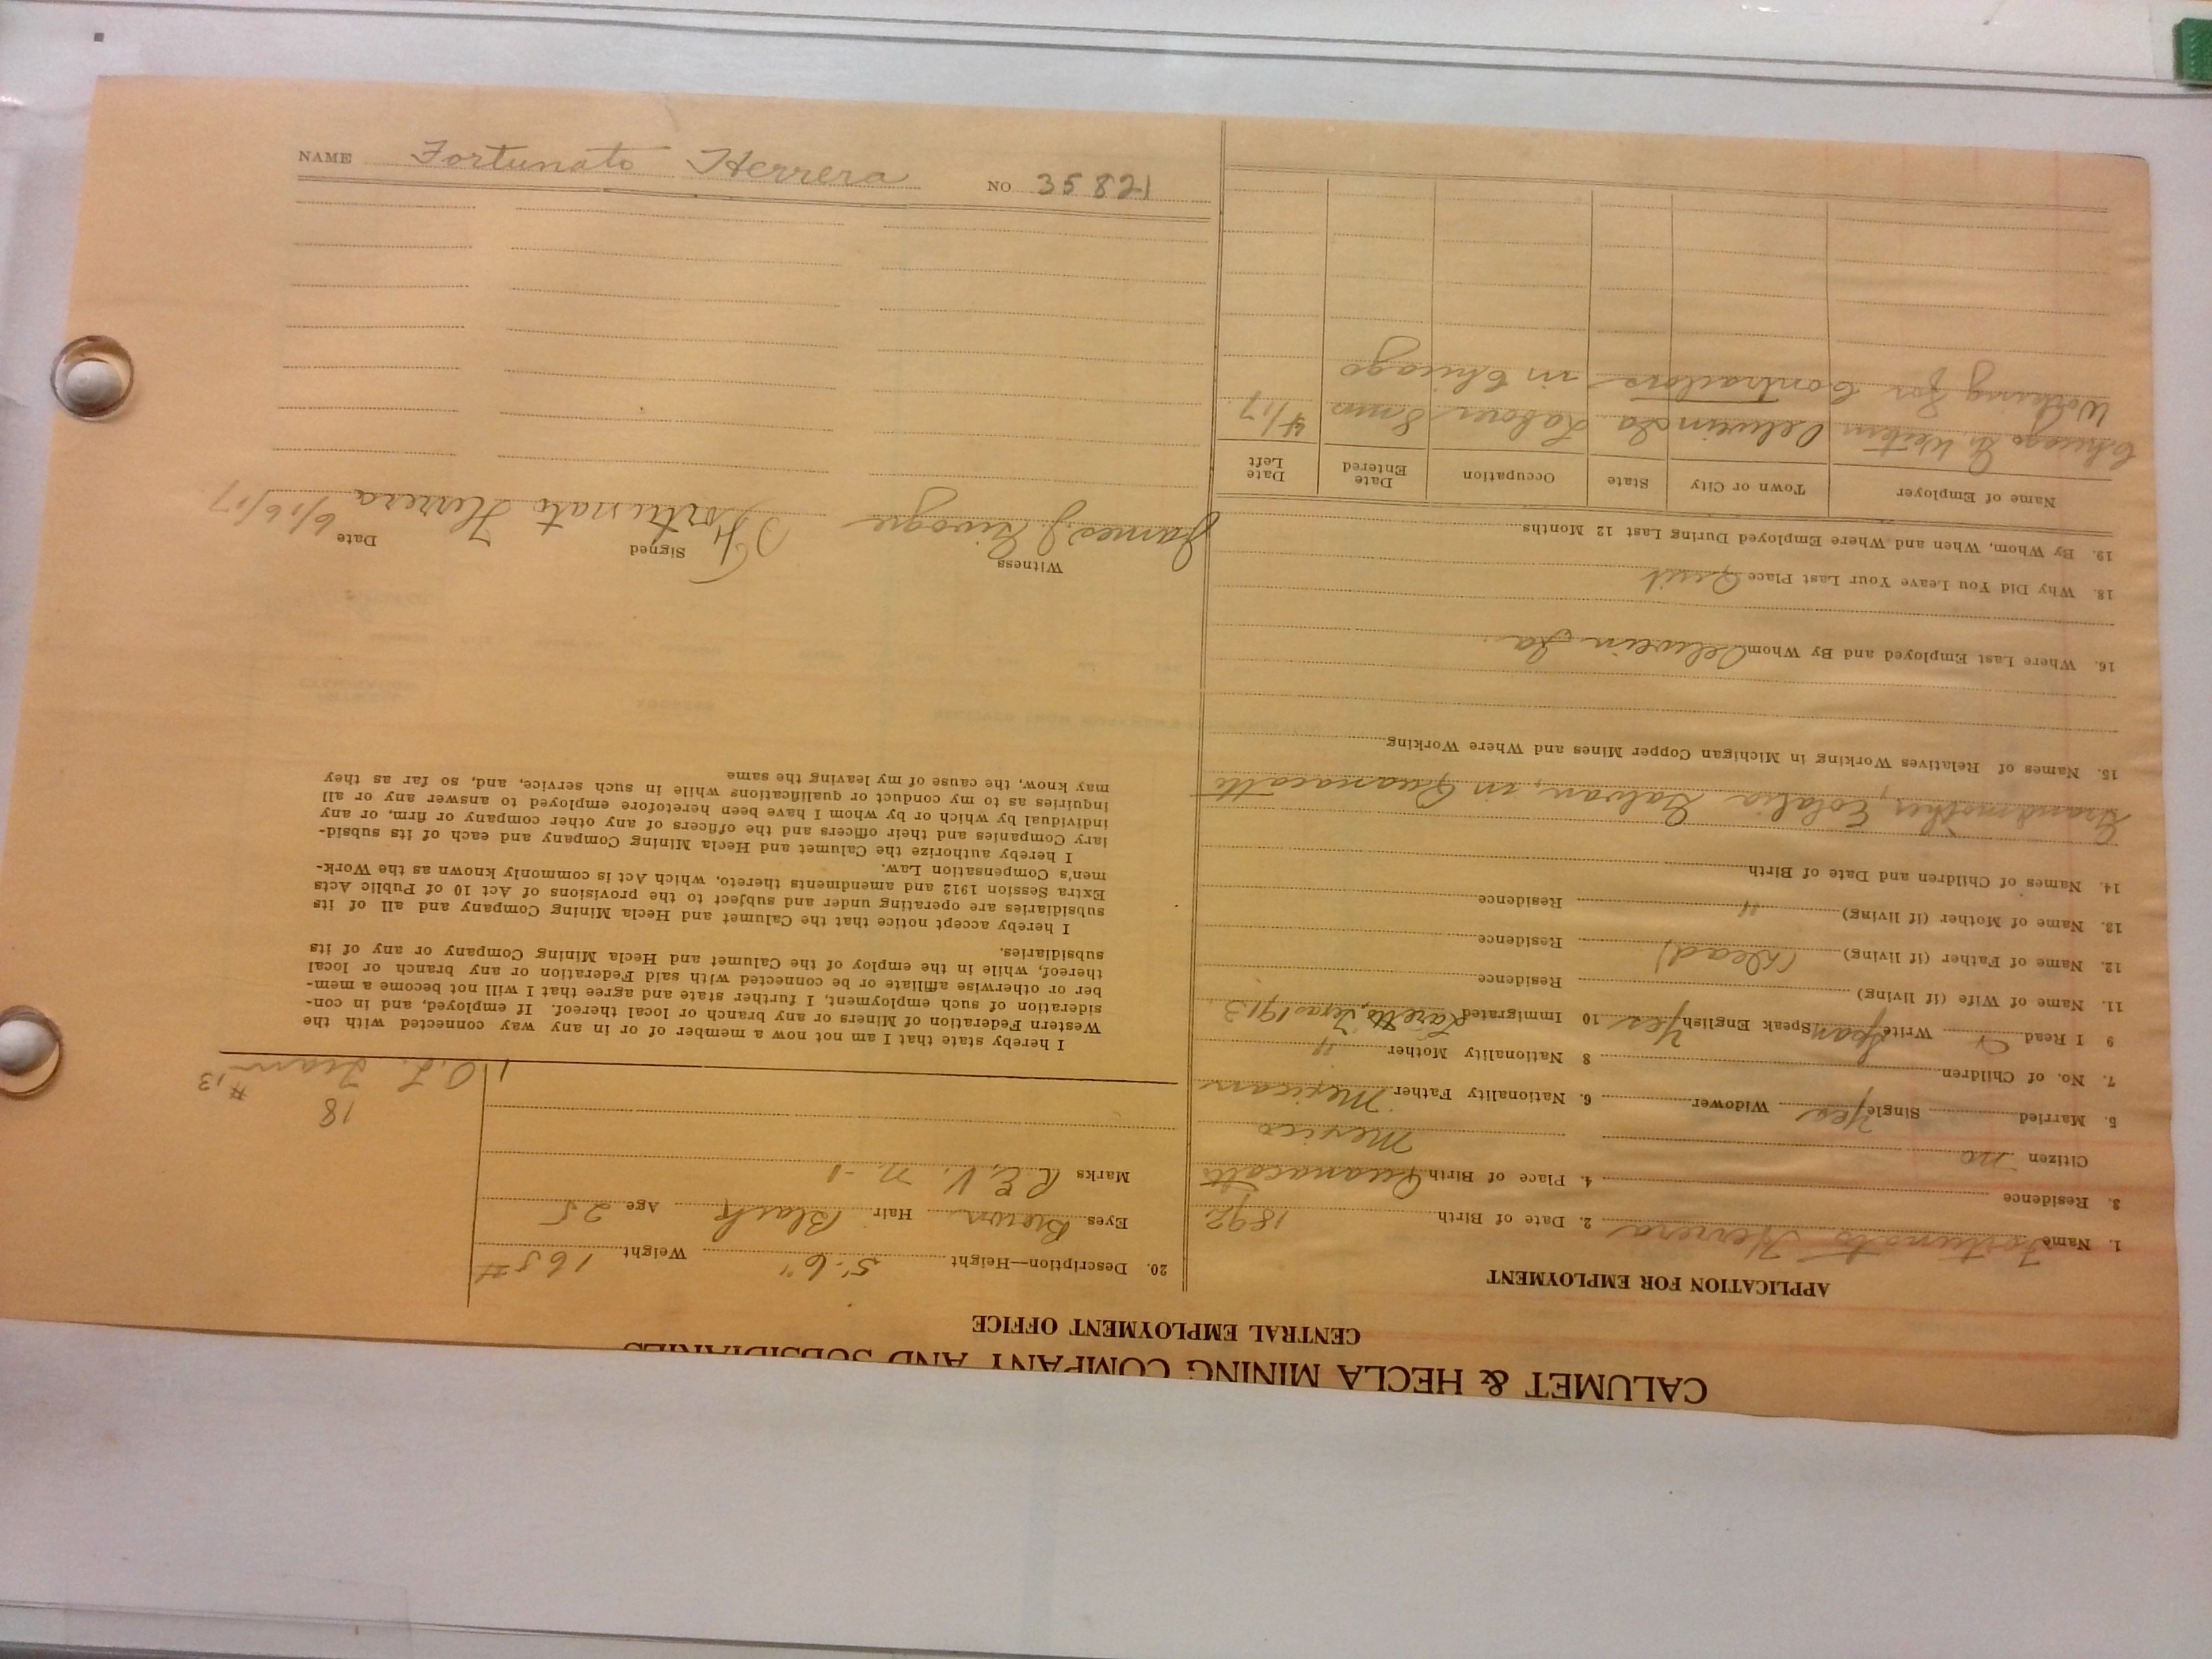 NAME Fortunato Herrera NO 35821
CALUMET & HECLA MINING COMPANY AND SUBSIDIARIES
CENTRAL EMPLOYMENT OFFICE
APPLICATION FOR EMPLOYMENT
1. Name Fortunato Herrera 2. Date of Birth 1892
3. Residence 4. Place of Birth Guanacato
Citizen no Mexico
5. Married Single Yes Widower 6. Nationality Father Mexican
7. No. of Children 8 Nationality Mother "
9 I Read Write Span Speak English Yes 10 Immigrated Laretto, Texas 1913
11. Name of Wife (if living) Residence
12. Name of Father (if living) (Dead) Residence
13. Name of Mother (if living) " Residence
14. Names of Children and Date of Birth
Grandmother, Eolalia Galvan, in Guanacatto
15. Names of Relatives Working in Michigan Copper Mines and Where Working
16. Where Last Employed and By Whom Oelwein Ia.
18. Why Did You Leave Your Last Place Quit
19. By Whom, When and Where Employed During Last 12 Months
Name of Employer Town or City State Occupation Date Entered Date Left
Chicago Gr. Western Oelwein Ia. Laborer 8 mos 4/17
Working for Contractors in Chicago
20. Description—Height 5'-6" Weight 165#
Eyes Brown Hair Black Age 25
Marks R.E.V. n-1
18
#13
I hereby state that I am not now a member of or in any way connected with the
Western Federation of Miners or any branch or local thereof. If employed, and in con-
sideration of such employment, I further state and agree that I will not become a mem-
ber or otherwise affiliate or be connected with said Federation or any branch or local
thereof, while in the employ of the Calumet and Hecla Mining Company or any of its
subsidiaries.
I hereby accept notice that the Calumet and Hecla Mining Company and all of its
subsidiaries are operating under and subject to the provisions of Act 10 of Public Acts
Extra Session 1912 and amendments thereto, which Act is commonly known as the Work-
men's Compensation Law.
I hereby authorize the Calumet and Hecla Mining Company and each of its subsid-
iary Companies and their officers and the officers of any other company or firm, or any
individual by which or by whom I have been heretofore employed to answer any or all
inquiries as to my conduct or qualifications while in such service, and, so far as they
may know, the cause of my leaving the same
Witness Signed Date 6/16/17
James J. Fortunato Herrera